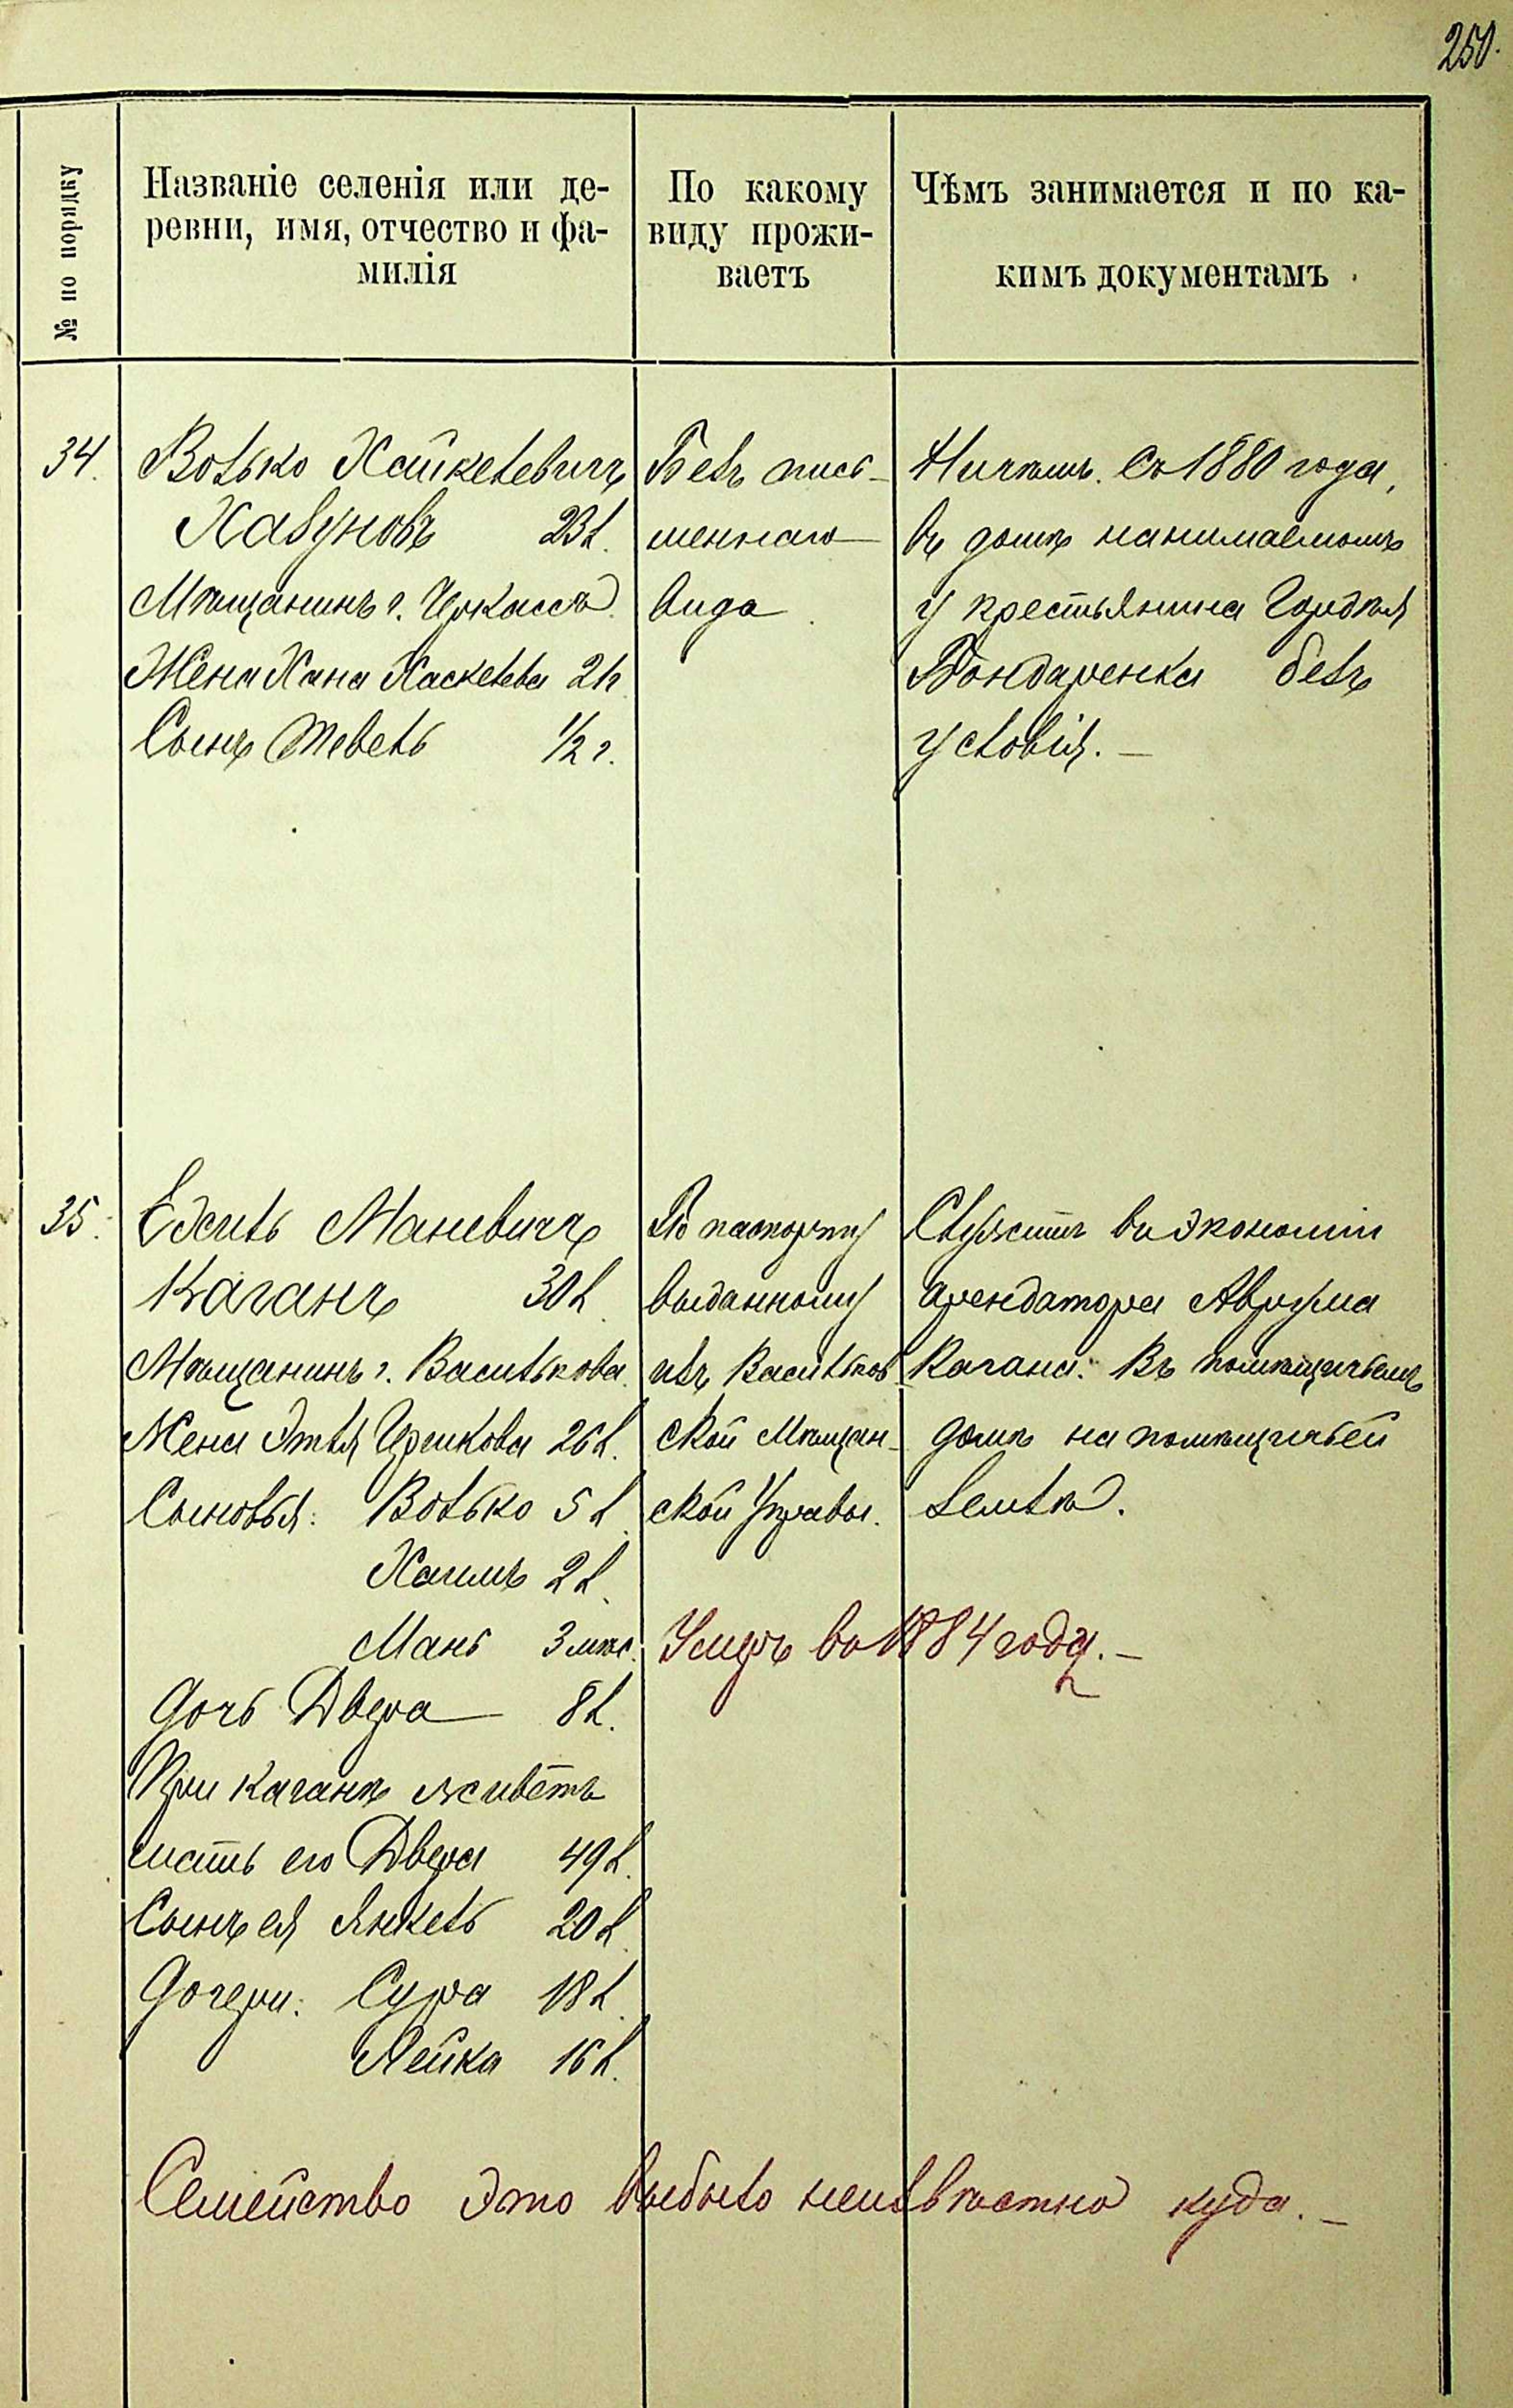 250.
№ по порядку
Названіе селенія или де-
ревни, имя, отчество и фа-
милія
По какому
виду прожи-
ваетъ
Чѣмъ занимается и по ка-
кимъ документамъ
34.
Волько Хайкелевичъ
Хазуновъ 23 л.
Мѣщанинъ г. Черкассъ
Жена Хана Хаскелева 21
Сынъ Тевель 1/2 г.
Безъ пись-
меннаго
вида
Ничѣмъ. Съ 1880 года,
въ домѣ нанимаемомъ
у крестьянина Гордѣя
Бондаренка безъ
условія. —
35.
Ехиль Маневичъ
Каганъ 30 л.
Мѣщанинъ г. Василькова.
Жена Этля Ицкова 26 л.
Сыновья: Волько 5 л.
Хаимъ 2 л.
Мань 3 мѣс.
Дочь Двера 8 л.
При Каганѣ живетъ
мать его Двера 49 л.
Сынъ ея Янкель 20 л.
Дочери: Сура 18 л.
Лейка 16 л.
По паспорту
выданному
изъ Васильков-
ской Мѣщан-
ской Управы.
Умеръ въ 1884 году. —
Служитъ въ экономіи
арендатора Аврума
Кагана. Въ помѣщичьемъ
домѣ на помѣщичьей
землѣ.
Семейство это выбыло неизвѣстно куда. —